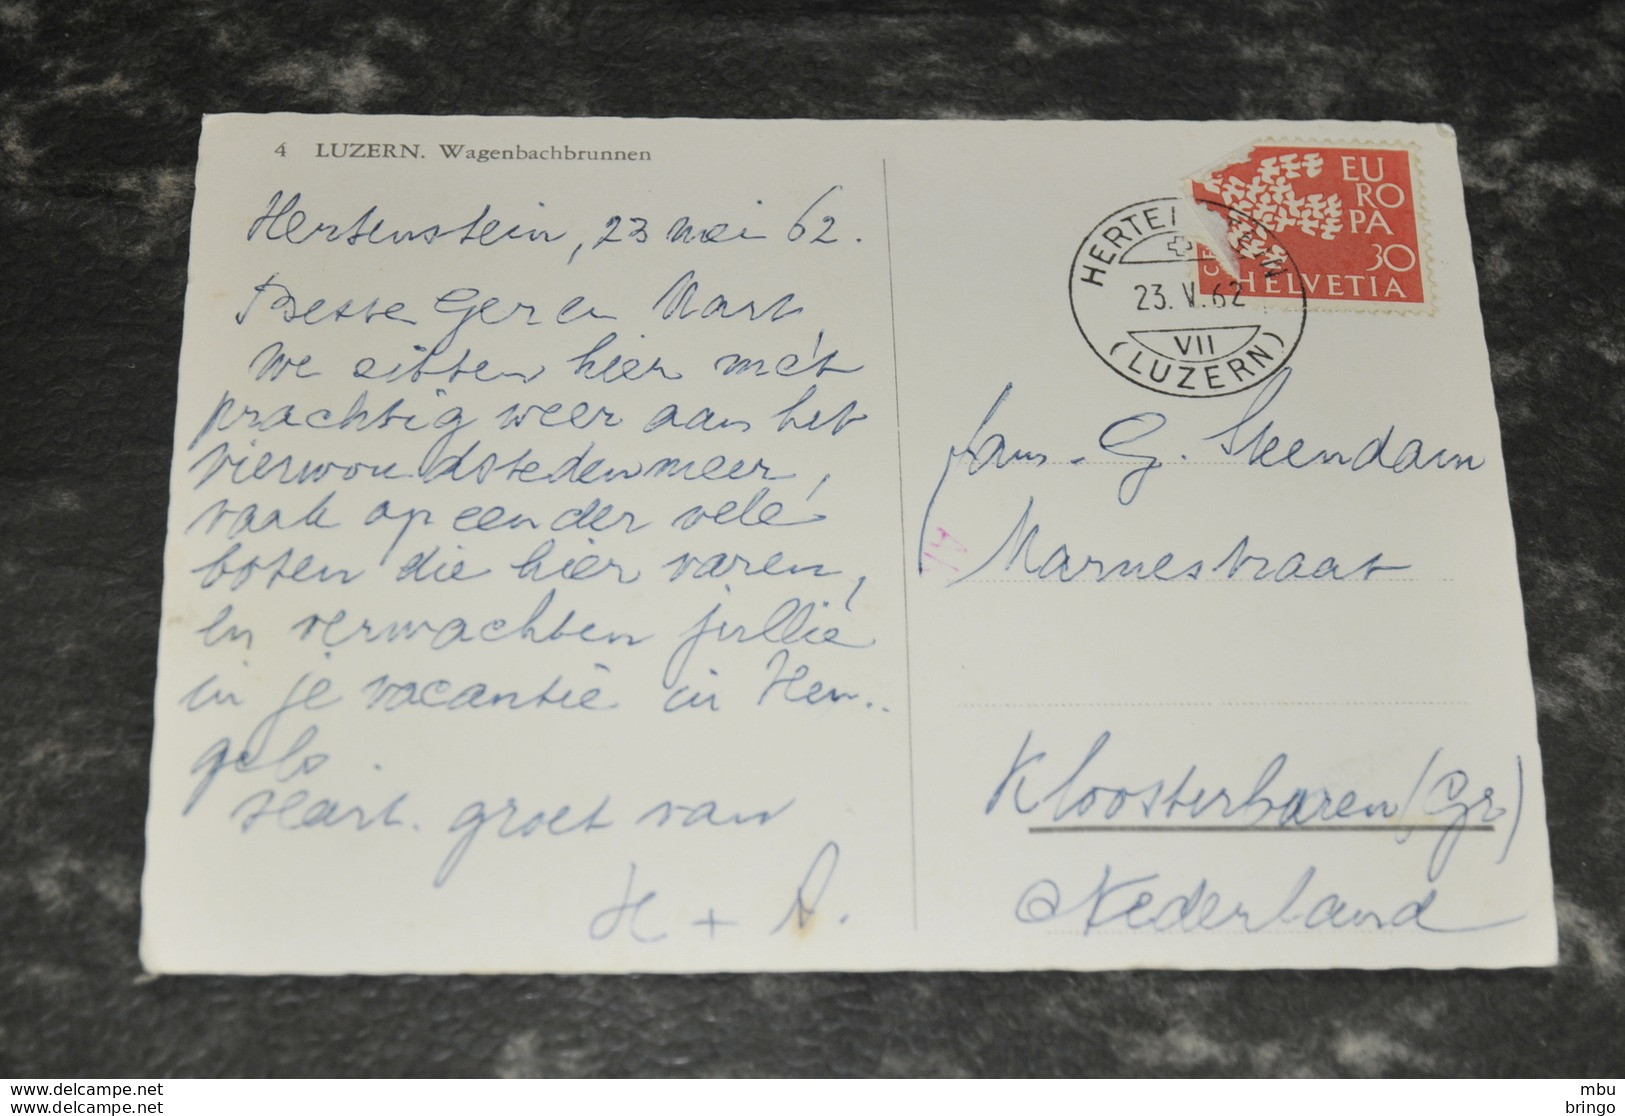 4 LUZERN. Wagenbachbrunnen
Hertenstein, 23 mei 62.
Beste Ger en Mart,
We zitten hier met
prachtig weer aan het
vierwoudstedenmeer,
vaak op een der vele
boten die hier varen,
en verwachten jullie
in je vacantie in Hen-
gelo.
Hart. groet van
H + A.
EU
RO
PA
30
HELVETIA
HERTENSTEIN
23.V.62
VII
(LUZERN)
Fam. G. Steendam
Marnestraat
Kloosterburen (Gr.)
Nederland
www.delcampe.net
www.delcampe.net
mbu
bringo